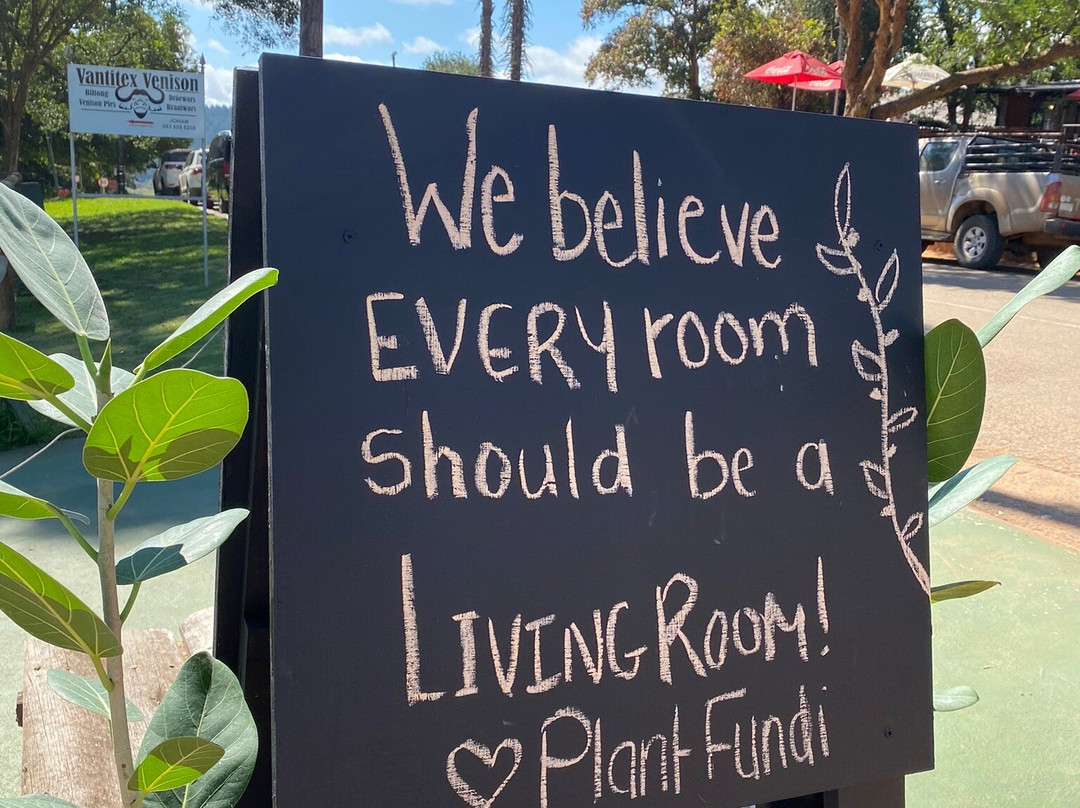 Vantitex Venison
Biltong
Venison Pies
Droëwors
Braaiwors
JOHAN
We believe
EVERY room
should be a
LIVING ROOM!
Plant Fundi